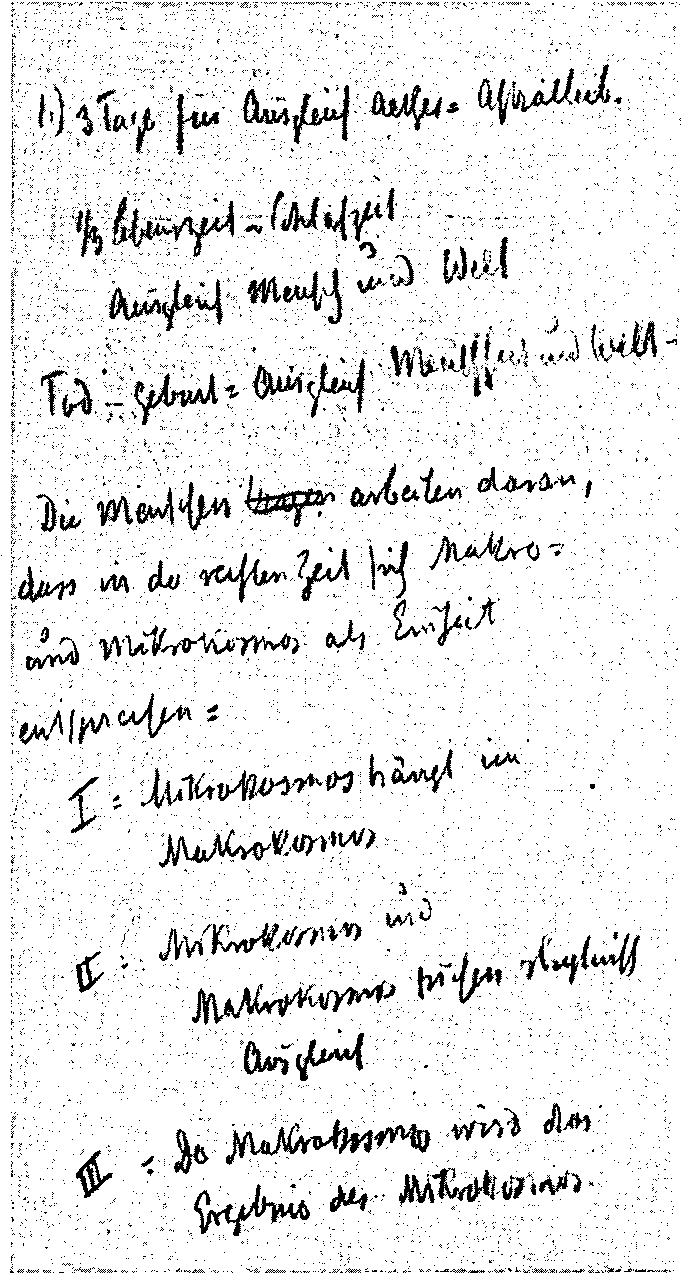 1.) 3 Tage für Ausgleich Aether= Astralleib.
1/3 Lebenszeit = Schlafzeit
Ausgleich Mensch und Welt
Tod - Geburt = Ausgleich und Welt -
Die Menschen arbeiten daran,
dass in der rechten Zeit sich Makro=
und Mikrokosmos als Einheit
entsprechen =
I = Mikrokosmos hängt im
Makrokosmos
II : Mikrokosmos und
Makrokosmos suchen
Ausgleich
III = Der Makrokosmos wird das
Ergebnis des Mikrokosmos.